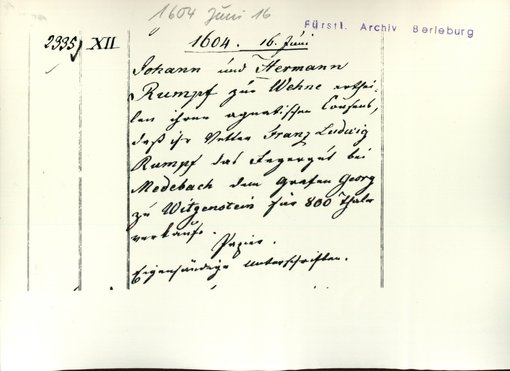 1604 Juni 16
Fürstl. Archiv Berleburg
2995) XII
1604. 16. Juni
Johann und Hermann
Rumpf zur Wehne erthei-
len ihren agnatischen Consens,
daß ihr Vetter Franz Ludwig
Rumpf das Jegergut bei
Medebach dem Grafen Georg
zu Witgenstein für 800 Thaler
verkauft.
Papier.
Eigenhändige Unterschriften.